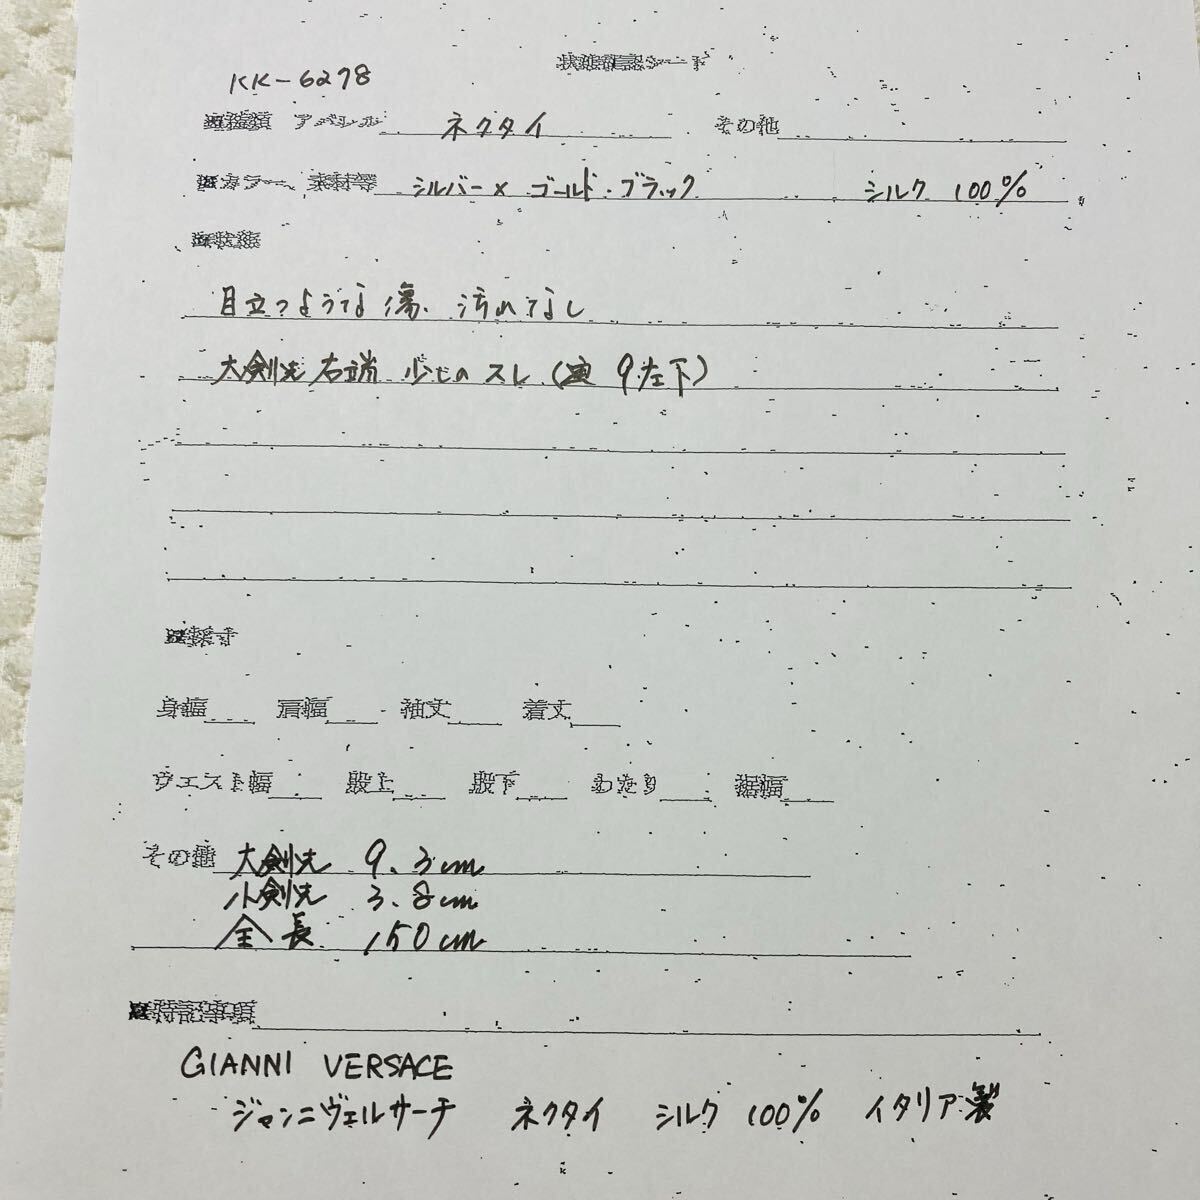 状態確認シート
KK-6278
種類 アパレル ネクタイ その他
カラー、素材等 シルバー×ゴールド・ブラック シルク 100%
状態
目立つような傷、汚れなし
大剣先 右端 少しのスレ ( 9左下)
採寸
身幅 肩幅 袖丈 着丈
ウエスト幅 股上 股下 わたり 裾幅
その他 大剣先 9.3cm
小剣先 3.8cm
全長 150cm
特記事項
GIANNI VERSACE
ジャンニヴェルサーチ ネクタイ シルク 100% イタリア製